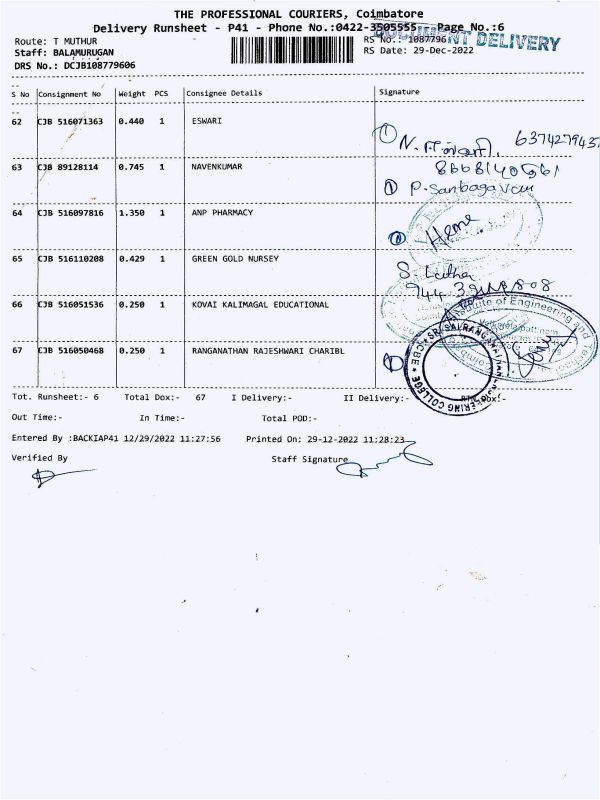 THE PROFESSIONAL COURIERS, Coimbatore
Delivery Runsheet - P41 - Phone No.:0422-3505555 Page No.:6
Route: T MUTHUR
RS No.: 1087796
DOCUMENT DELIVERY
Staff: BALAMURUGAN
RS Date: 29-Dec-2022
DRS No.: DCJB108779606
S No Consignment No Weight PCS Consignee Details Signature
62 CJB 516071363 0.440 1 ESWARI
63 CJB 89128114 0.745 1 NAVENKUMAR
P. Sanbagavam
64 CJB 516097816 1.350 1 ANP PHARMACY
Heme
65 CJB 516110208 0.429 1 GREEN GOLD NURSEY
S. Latha
66 CJB 516051536 0.250 1 KOVAI KALIMAGAL EDUCATIONAL
Institute of Engineering and
67 CJB 516050468 0.250 1 RANGANATHAN RAJESHWARI CHARIBL
Tot. Runsheet:- 6 Total Dox:- 67 I Delivery:- II Delivery:-
Out Time:- In Time:- Total POD:-
Entered By :BACKIAP41 12/29/2022 11:27:56 Printed On: 29-12-2022 11:28:23
Verified By Staff Signature